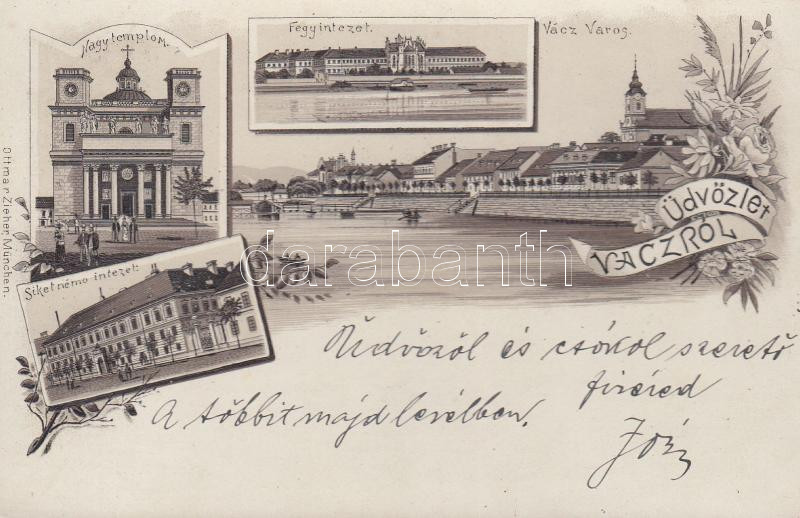 Nagytemplom.
Fegyintezet.
Vácz Varos.
Üdvözlet
VÁCZRÓL
Siketnémo intezet.
Ottmar Zieher, München.
darabanth
Üdvözöl és csókol szerető
fivéred
A többit majd levélben.